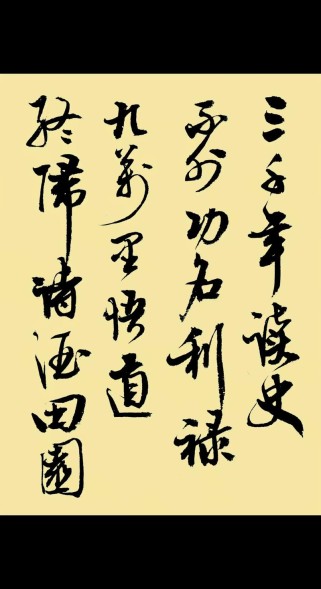 三千年读史
不外功名利禄
九萬里悟道
終歸诗酒田園